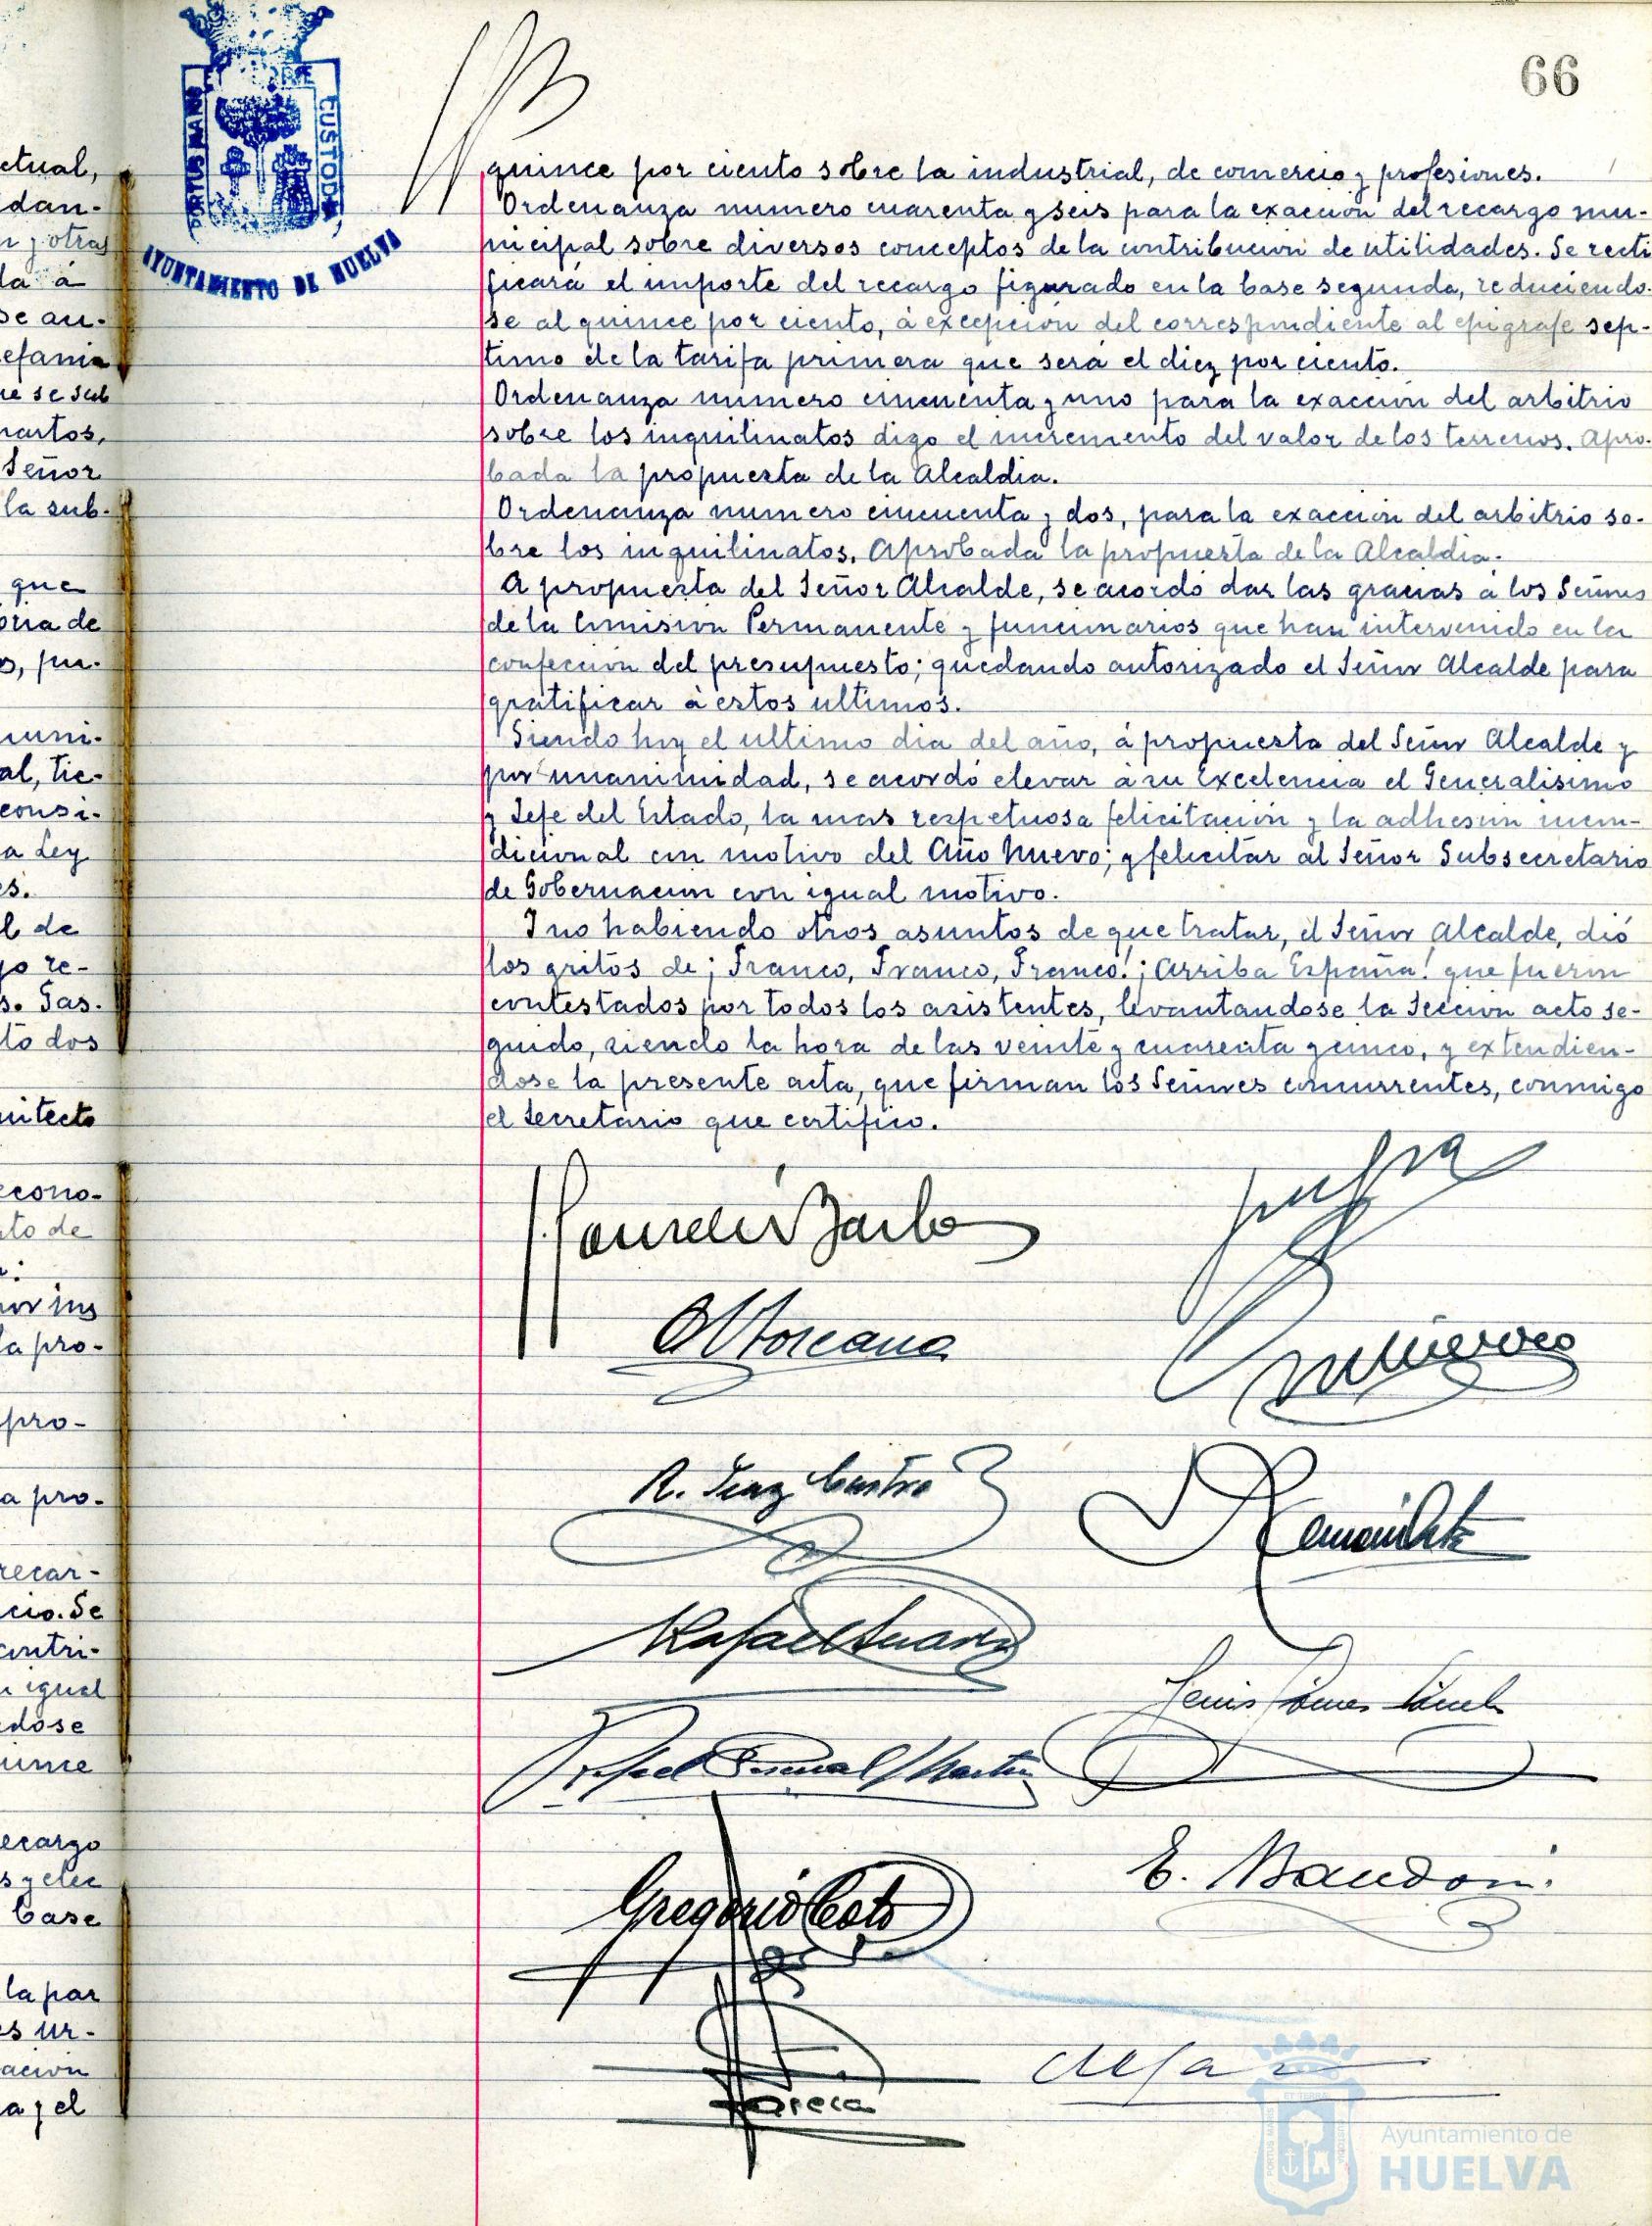 66
PORTUS MARIS
CUSTODIA
AYUNTAMIENTO DE HUELVA
ctual,
dan-
n y otras
da á
se au-
efania
ue se sub
nartos,
Señor
la sub-
que
oria de
os, pu-
uni-
al, tie-
consi-
a Ley
es.
l de
go re-
s. Gas-
to dos
uitecto
econo-
to de
a pro-
pro-
a pro-
recar-
cio. Se
contri-
n igual
ndose
uince
ecargo
s y elec
base
la par
es ur-
acion
a y el
quince por ciento sobre la industrial, de comercio y profesiones.
Ordenanza numero cuarenta y seis para la exaccion del recargo mu-
nicipal sobre diversos conceptos de la contribucion de utilidades. Se recti
ficará el importe del recargo figurado en la base segunda, reduciendo-
se al quince por ciento, á excepcion del correspondiente al epigrafe sep-
timo de la tarifa primera que será el diez por ciento.
Ordenanza numero cincuenta y uno para la exaccion del arbitrio
sobre los inquilinatos digo el incremento del valor de los terrenos. Apro-
bada la propuesta de la Alcaldia.
Ordenanza numero cincuenta y dos, para la exaccion del arbitrio so-
bre los inquilinatos. Aprobada la propuesta de la Alcaldia.
A propuesta del Señor Alcalde, se acordó dar las gracias á los Señores
de la Comision Permanente y funcionarios que han intervenido en la
confeccion del presupuesto; quedando autorizado el Señor Alcalde para
gratificar á estos ultimos.
Siendo hoy el ultimo dia del año, á propuesta del Señor Alcalde y
por unanimidad, se acordó elevar á su Excelencia el Generalisimo
y Jefe del Estado, la mas respetuosa felicitacion y la adhesion incon-
dicional con motivo del Año Nuevo; y felicitar al Señor Subsecretario
de Gobernacion con igual motivo.
Y no habiendo otros asuntos de que tratar, el Señor Alcalde, dió
los gritos de ¡Franco, Franco, Franco! ¡Arriba España! que fueron
contestados por todos los asistentes, levantandose la Seccion acto se-
guido, siendo la hora de las veinte y cuarenta y cinco, y extendien-
dose la presente acta, que firman los Señores concurrentes, conmigo
el Secretario que certifico.
R. Diaz Castro
Rafael Suarez
Rafael Martin
Gregorio Coto
E. Baudoin.
Ayuntamiento de
HUELVA